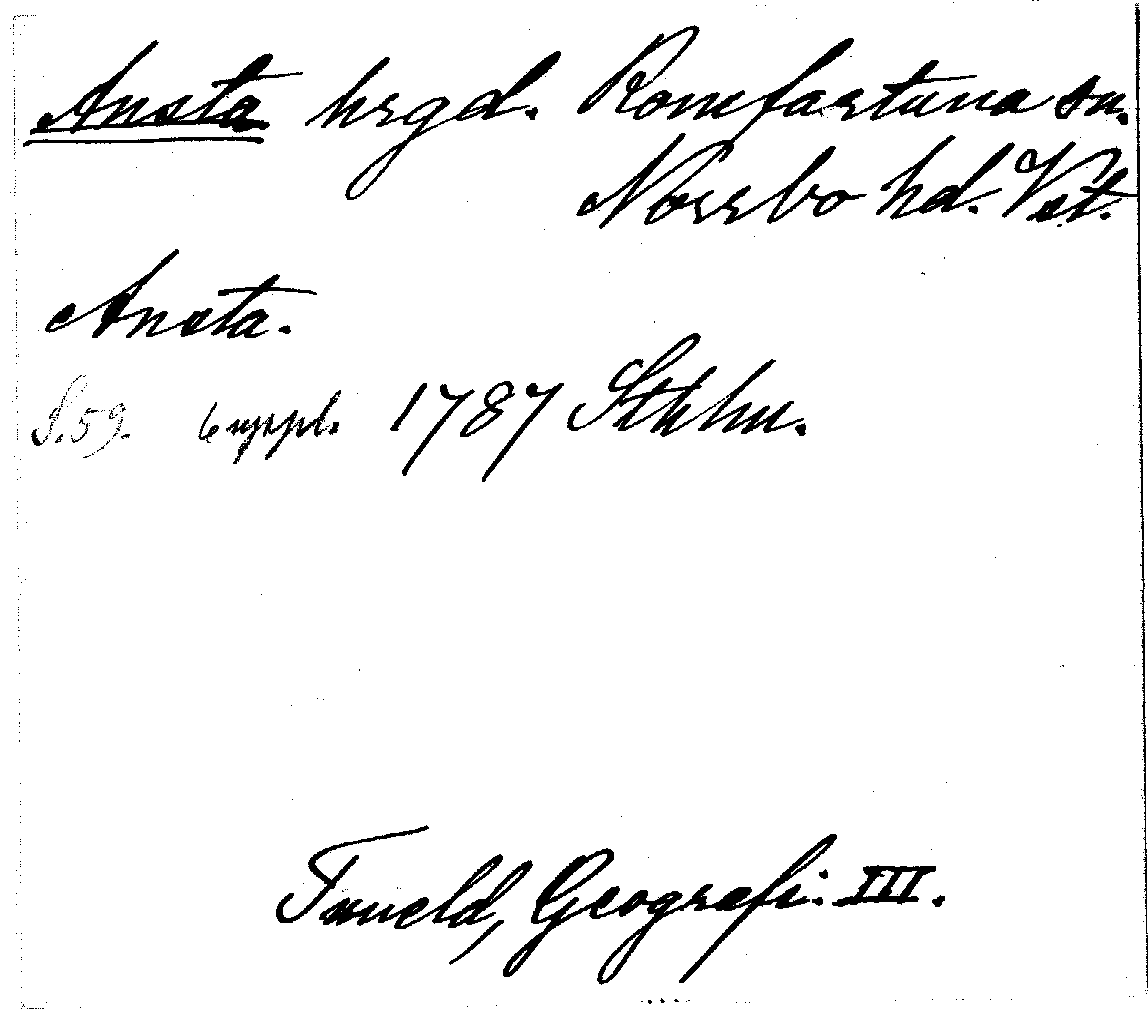 Ansta hrgd. Romfartuna sn.
Norrbo hd. Vst.
Ansta.
S. 59. 6 uppl. 1787 Sthlm.
Tuneld, Geografi. III.